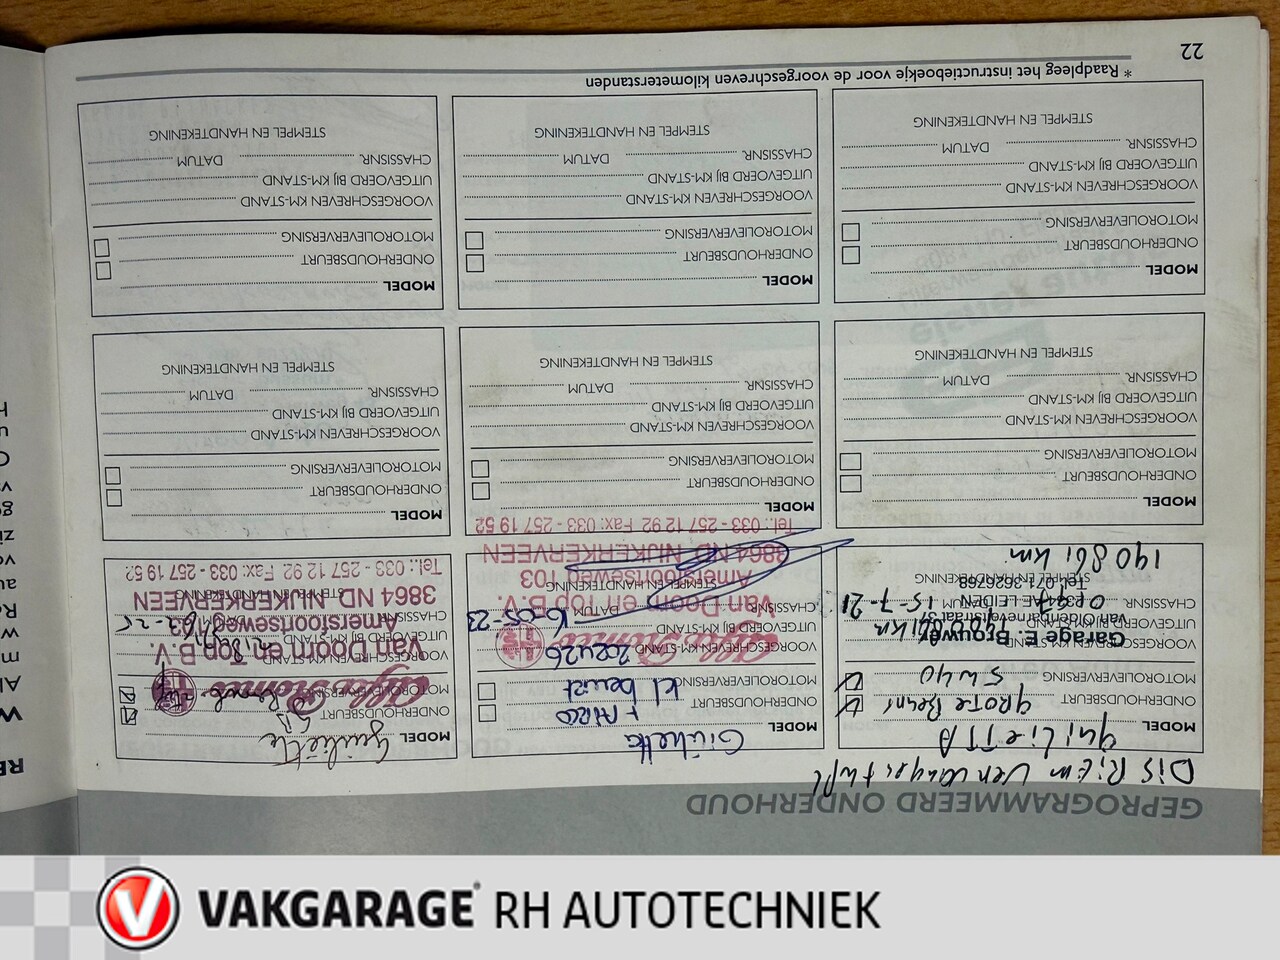 GEPROGRAMMEERD ONDERHOUD
Dis Riem Vervangen + wpl
MODEL giulietta
ONDERHOUDSBEURT grote Beurt
MOTOROLIEVERVERSING 5w40
VOORGESCHREVEN KM-STAND
Garage E. Brouwer
UITGEVOERD BIJ KM-STAND
van Oldenbarneveldtstraat 37
CHASSISNR. DATUM 15-7-21
2334 AE LEIDEN
STEMPEL EN HANDTEKENING
Tel. 071
140861 km
MODEL Giulietta
ONDERHOUDSBEURT + AIRCO
MOTOROLIEVERVERSING kl beurt
VOORGESCHREVEN KM-STAND
Alfa Romeo
UITGEVOERD BIJ KM-STAND
CHASSISNR. DATUM 16-05-23
Van Doorn en Bop B.V.
STEMPEL EN HANDTEKENING
Amersfoortseweg 103
3864 ND NIJKERKERVEEN
Tel.: 033 - 257 12 92 Fax: 033 - 257 19 52
MODEL Giulietta
ONDERHOUDSBEURT
MOTOROLIEVERVERSING
Alfa Romeo
VOORGESCHREVEN KM-STAND
Van Doorn en Bop B.V.
UITGEVOERD BIJ KM-STAND
Amersfoortseweg 103
CHASSISNR. DATUM
3864 ND NIJKERKERVEEN
STEMPEL EN HANDTEKENING
Tel.: 033 - 257 12 92 Fax: 033 - 257 19 52
MODEL
ONDERHOUDSBEURT
MOTOROLIEVERVERSING
VOORGESCHREVEN KM-STAND
UITGEVOERD BIJ KM-STAND
CHASSISNR. DATUM
STEMPEL EN HANDTEKENING
MODEL
ONDERHOUDSBEURT
MOTOROLIEVERVERSING
VOORGESCHREVEN KM-STAND
UITGEVOERD BIJ KM-STAND
CHASSISNR. DATUM
STEMPEL EN HANDTEKENING
MODEL
ONDERHOUDSBEURT
MOTOROLIEVERVERSING
VOORGESCHREVEN KM-STAND
UITGEVOERD BIJ KM-STAND
CHASSISNR. DATUM
STEMPEL EN HANDTEKENING
MODEL
ONDERHOUDSBEURT
MOTOROLIEVERVERSING
VOORGESCHREVEN KM-STAND
UITGEVOERD BIJ KM-STAND
CHASSISNR. DATUM
STEMPEL EN HANDTEKENING
MODEL
ONDERHOUDSBEURT
MOTOROLIEVERVERSING
VOORGESCHREVEN KM-STAND
UITGEVOERD BIJ KM-STAND
CHASSISNR. DATUM
STEMPEL EN HANDTEKENING
MODEL
ONDERHOUDSBEURT
MOTOROLIEVERVERSING
VOORGESCHREVEN KM-STAND
UITGEVOERD BIJ KM-STAND
CHASSISNR. DATUM
STEMPEL EN HANDTEKENING
* Raadpleeg het instructieboekje voor de voorgeschreven kilometerstanden
22
VAKGARAGE RH AUTOTECHNIEK